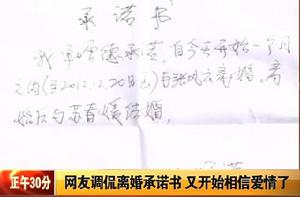 承诺书
我单增德承诺,自今天开始一个月
之内(至2012.2.20日止)与张风云离婚。离
婚后与苏春媛结婚。
正午30分
网友调侃离婚承诺书 又开始相信爱情了